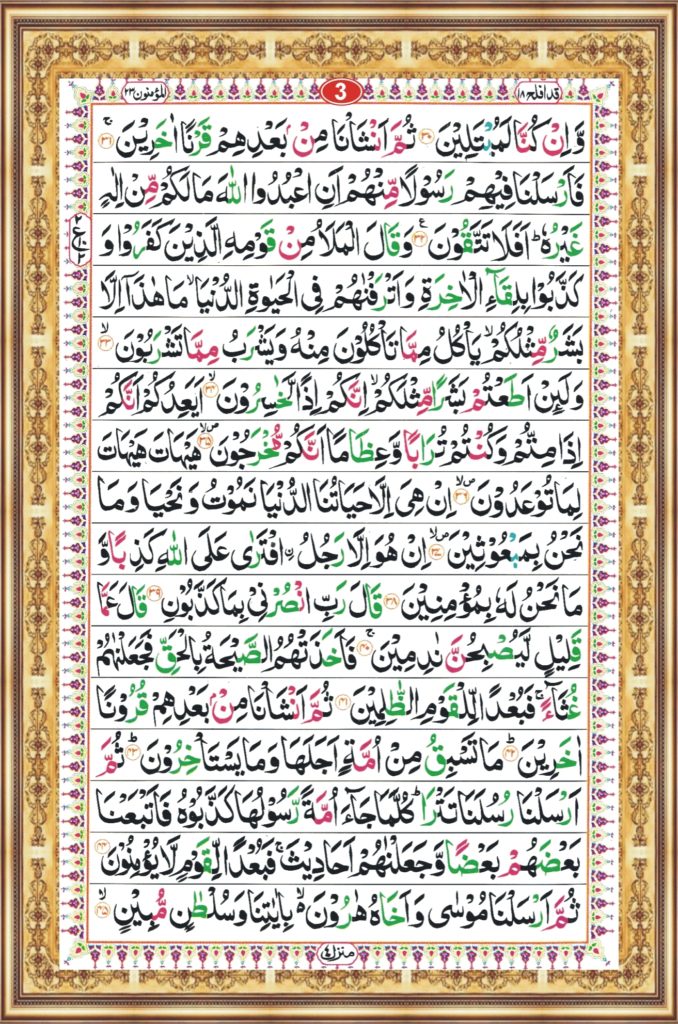 المؤمنون ٢٣
3
قد افلح ١٨
وَّاِنْ كُنَّا لَمُبْتَلِيْنَ ۝۳۰ ثُمَّ اَنْشَاْنَا مِنْۢ بَعْدِهِمْ قَرْنًا اٰخَرِيْنَ ۝۳۱ۚ
فَاَرْسَلْنَا فِيْهِمْ رَسُوْلًا مِّنْهُمْ اَنِ اعْبُدُوا اللّٰهَ مَا لَكُمْ مِّنْ اِلٰهٍ
غَيْرُهٗ ؕ اَفَلَا تَتَّقُوْنَ ۝۳۲ۧ وَقَالَ الْمَلَاُ مِنْ قَوْمِهِ الَّذِيْنَ كَفَرُوْا وَ
كَذَّبُوْا بِلِقَآءِ الْاٰخِرَةِ وَاَتْرَفْنٰهُمْ فِى الْحَيٰوةِ الدُّنْيَا ۙ مَا هٰذَاۤ اِلَّا
بَشَرٌ مِّثْلُكُمْ ۙ يَاْكُلُ مِمَّا تَاْكُلُوْنَ مِنْهُ وَيَشْرَبُ مِمَّا تَشْرَبُوْنَ ۝۳۳ۙ
وَلَىِٕنْ اَطَعْتُمْ بَشَرًا مِّثْلَكُمْ ۙ اِنَّكُمْ اِذًا لَّخٰسِرُوْنَ ۝۳۴ۙ اَيَعِدُكُمْ اَنَّكُمْ
اِذَا مِتُّمْ وَكُنْتُمْ تُرَابًا وَّعِظَامًا اَنَّكُمْ مُّخْرَجُوْنَ ۝۳۵ۙ هَيْهَاتَ هَيْهَاتَ
لِمَا تُوْعَدُوْنَ ۝۳۶ۙ اِنْ هِىَ اِلَّا حَيَاتُنَا الدُّنْيَا نَمُوْتُ وَنَحْيَا وَمَا
نَحْنُ بِمَبْعُوْثِيْنَ ۝۳۷ۙ اِنْ هُوَ اِلَّا رَجُلُ ۨافْتَرٰى عَلَى اللّٰهِ كَذِبًا وَّ
مَا نَحْنُ لَهٗ بِمُؤْمِنِيْنَ ۝۳۸ قَالَ رَبِّ انْصُرْنِىْ بِمَا كَذَّبُوْنِ ۝۳۹ قَالَ عَمَّا
قَلِيْلٍ لَّيُصْبِحُنَّ نٰدِمِيْنَ ۝۴۰ۚ فَاَخَذَتْهُمُ الصَّيْحَةُ بِالْحَقِّ فَجَعَلْنٰهُمْ
غُثَآءً ۚ فَبُعْدًا لِّلْقَوْمِ الظّٰلِمِيْنَ ۝۴۱ ثُمَّ اَنْشَاْنَا مِنْۢ بَعْدِهِمْ قُرُوْنًا
اٰخَرِيْنَ ۝۴۲ؕ مَا تَسْبِقُ مِنْ اُمَّةٍ اَجَلَهَا وَمَا يَسْتَاْخِرُوْنَ ۝۴۳ؕ ثُمَّ
اَرْسَلْنَا رُسُلَنَا تَتْرَا ؕ كُلَّمَا جَآءَ اُمَّةً رَّسُوْلُهَا كَذَّبُوْهُ فَاَتْبَعْنَا
بَعْضَهُمْ بَعْضًا وَّجَعَلْنٰهُمْ اَحَادِيْثَ ۚ فَبُعْدًا لِّقَوْمٍ لَّا يُؤْمِنُوْنَ ۝۴۴
ثُمَّ اَرْسَلْنَا مُوْسٰى وَاَخَاهُ هٰرُوْنَ ۙ۬ بِاٰيٰتِنَا وَسُلْطٰنٍ مُّبِيْنٍ ۝۴۵ۙ
منزل ٤